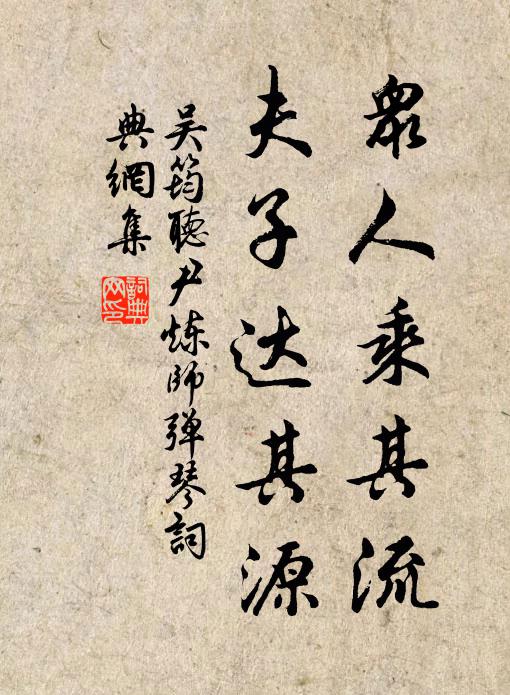 众人乘其流
夫子达其源
吴筠聽尹炼師弹琴詞
典網集
詞典网印